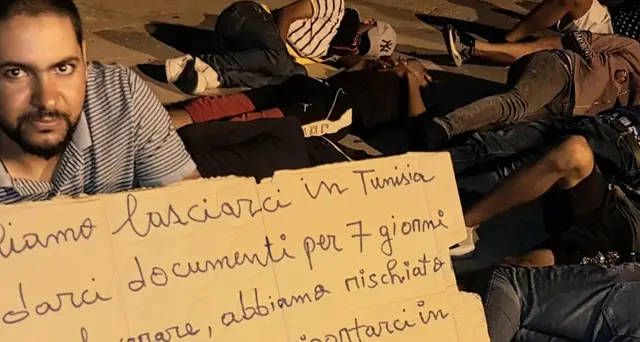 lasciarci in Tunisia
darci documenti per 7 giorni
abbiamo rischiato
in